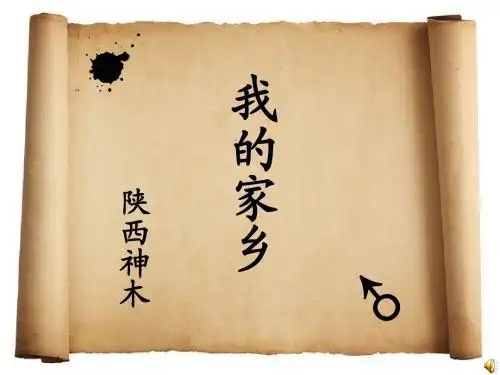 我的家乡
陕西神木